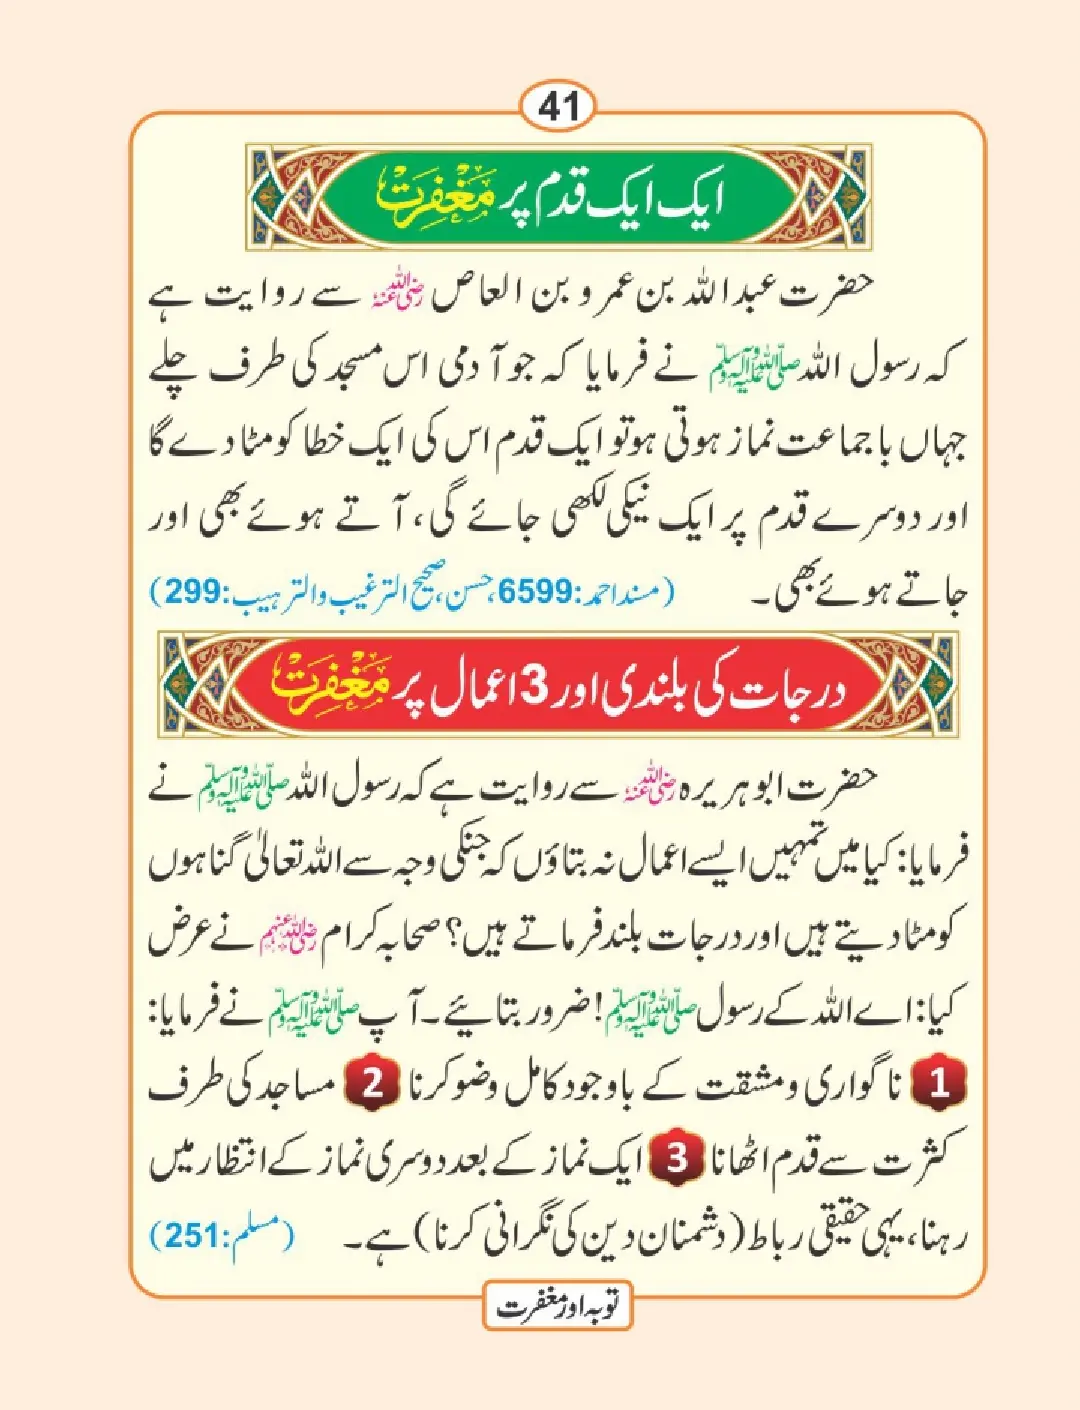 41
ایک ایک قدم پر مغفرت
حضرت عبداللہ بن عمرو بن العاص رضی اللہ عنہ سے روایت ہے
کہ رسول اللہ صلی اللہ علیہ وآلہ وسلم نے فرمایا کہ جو آدمی اس مسجد کی طرف چلے
جہاں باجماعت نماز ہوتی ہو تو ایک قدم اس کی ایک خطا کو مٹا دے گا
اور دوسرے قدم پر ایک نیکی لکھی جائے گی، آتے ہوئے بھی اور
جاتے ہوئے بھی۔ (مسند احمد:6599، حسن، صحیح الترغیب والترہیب:299)
درجات کی بلندی اور 3 اعمال پر مغفرت
حضرت ابو ہریرہ رضی اللہ عنہ سے روایت ہے کہ رسول اللہ صلی اللہ علیہ وآلہ وسلم نے
فرمایا: کیا میں تمہیں ایسے اعمال نہ بتاؤں کہ جنکی وجہ سے اللہ تعالیٰ گناہوں
کو مٹا دیتے ہیں اور درجات بلند فرماتے ہیں؟ صحابہ کرام رضی اللہ عنہم نے عرض
کیا: اے اللہ کے رسول صلی اللہ علیہ وآلہ وسلم! ضرور بتائیے۔ آپ صلی اللہ علیہ وآلہ وسلم نے فرمایا:
1 ناگواری و مشقت کے باوجود کامل وضو کرنا 2 مساجد کی طرف
کثرت سے قدم اٹھانا 3 ایک نماز کے بعد دوسری نماز کے انتظار میں
رہنا، یہی حقیقی رباط (دشمنان دین کی نگرانی کرنا) ہے۔ (مسلم:251)
توبہ اور مغفرت